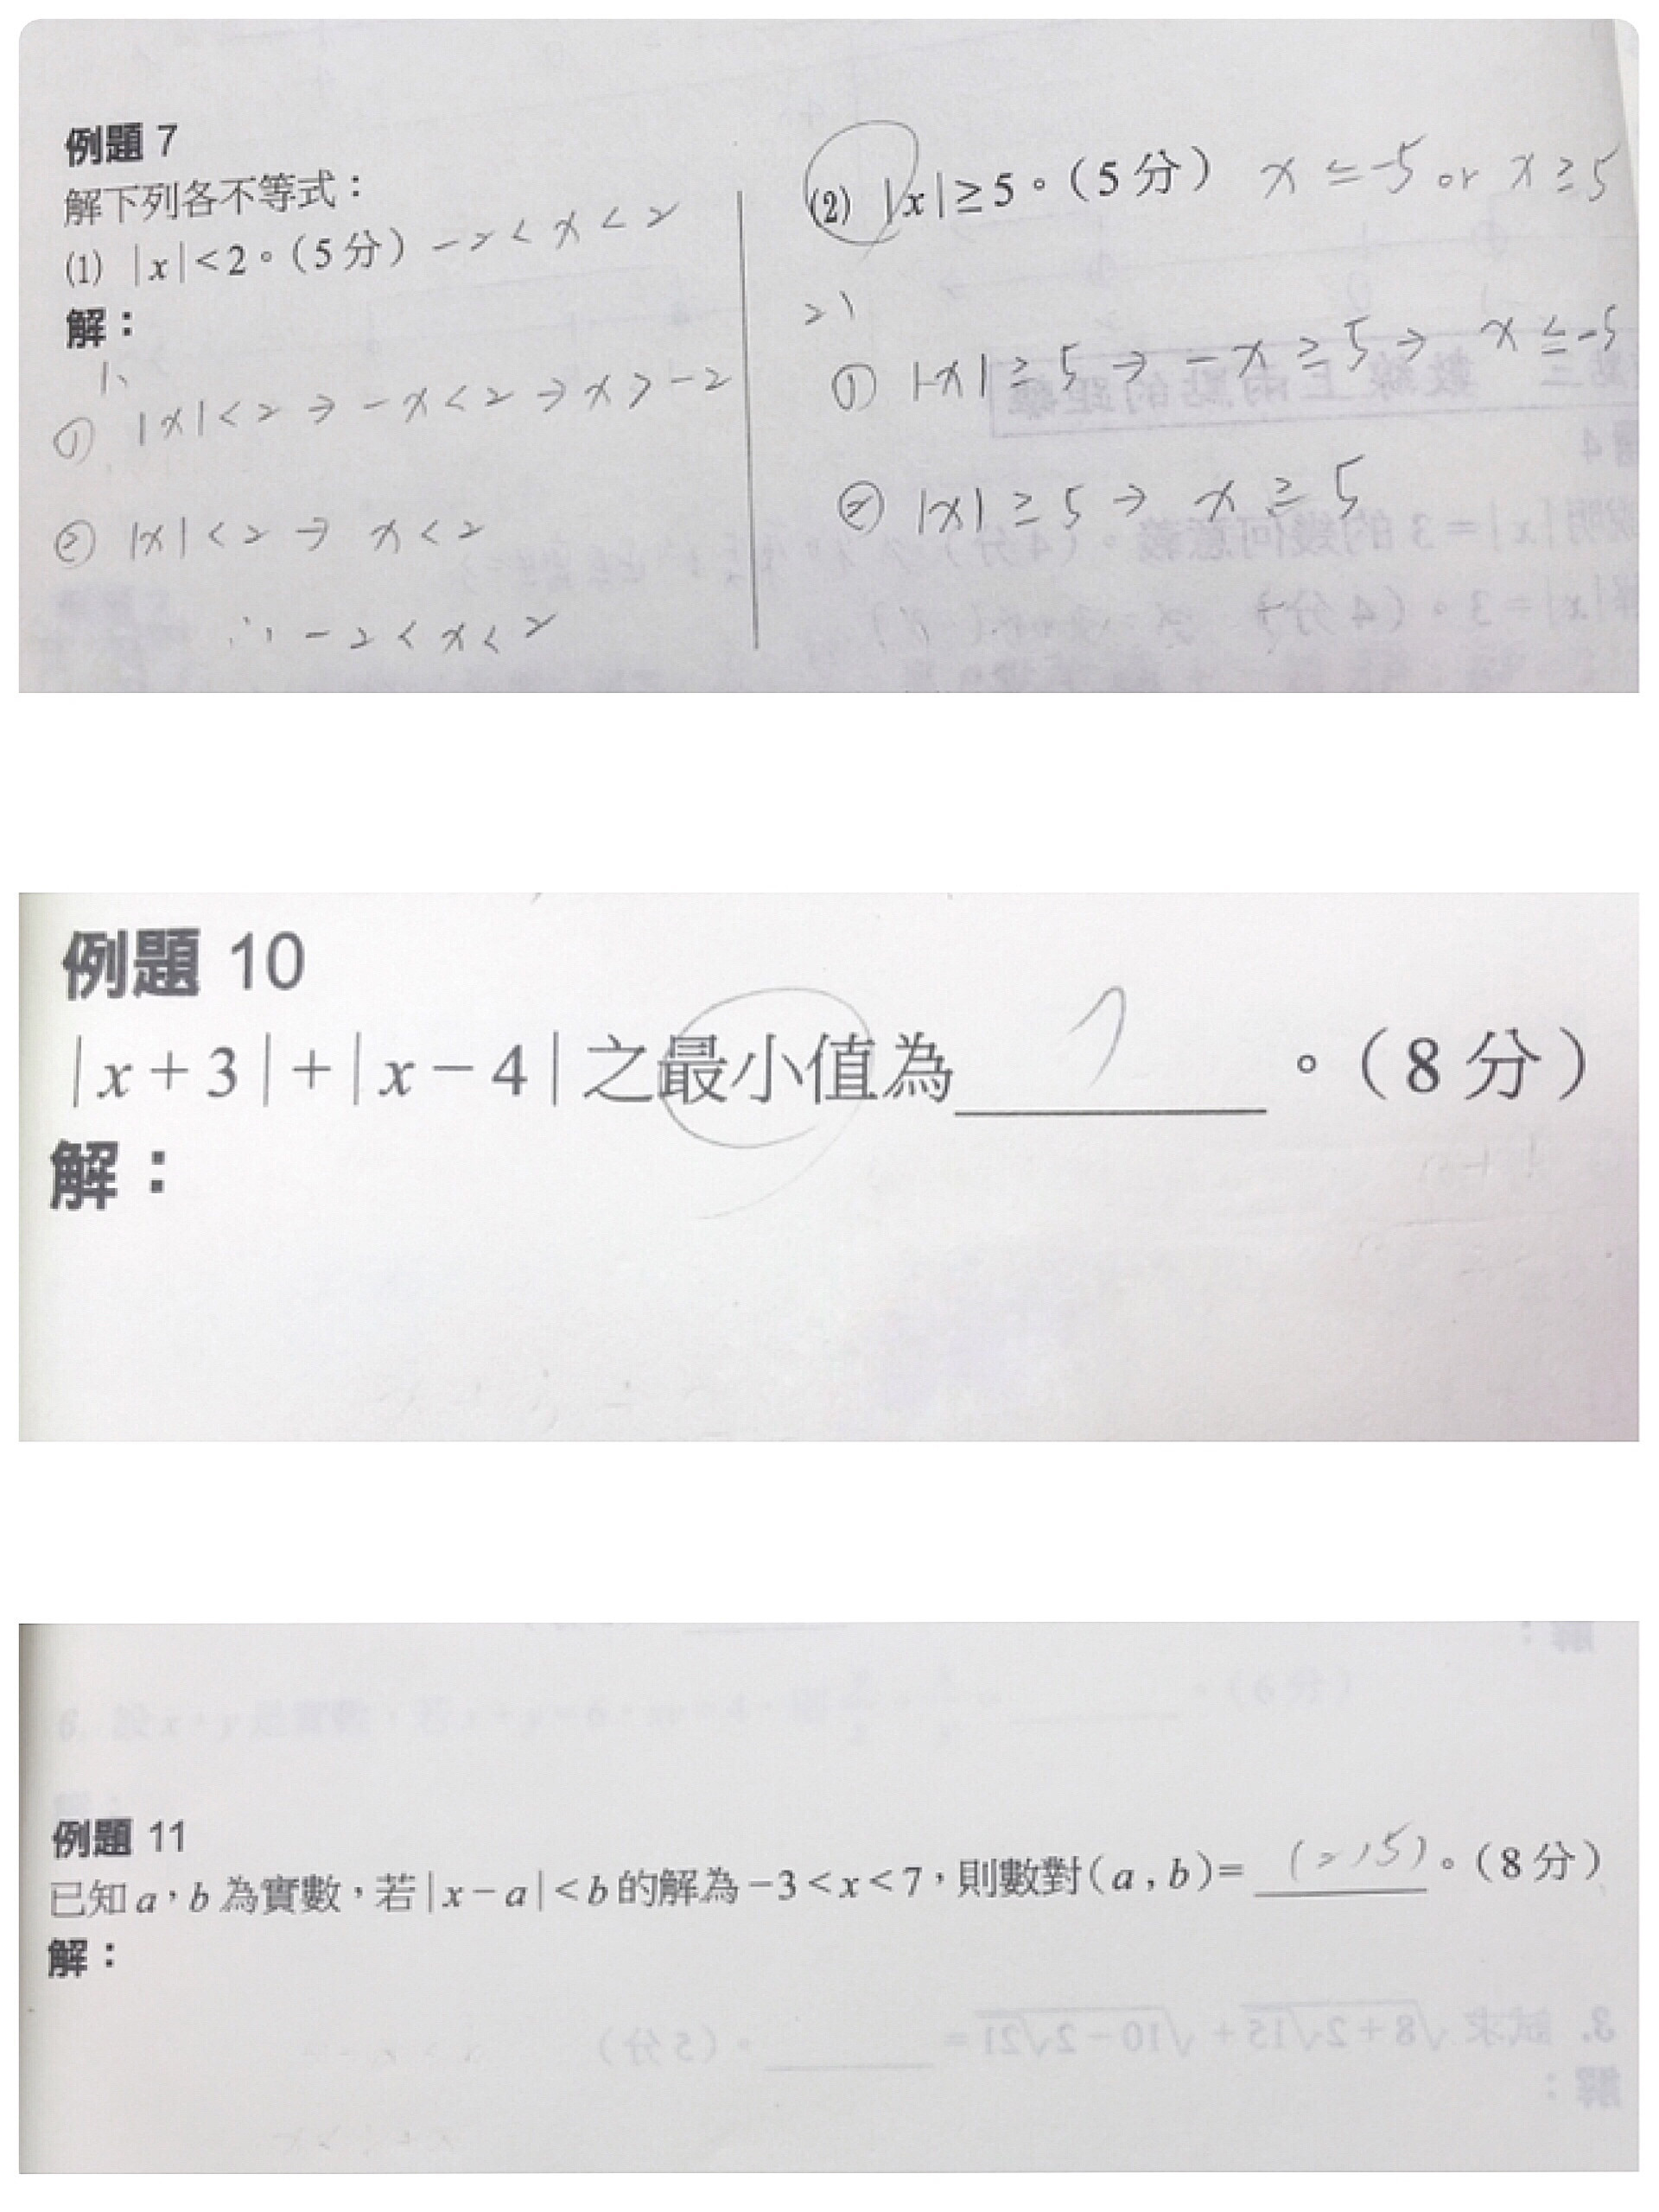 例題 7
解下列各不等式：
(1) |x|<2。(5分) -2<x<2
解：
1、
① |x|<2 → -x<2 → x>-2
② |x|<2 → x<2
∴ -2<x<2
(2) |x|≥5。(5分) x≤-5 or x≥5
2、
① |-x|≥5 → -x≥5 → x≤-5
② |x|≥5 → x≥5
例題 10
|x+3|+|x-4|之最小值為 7 。(8分)
解：
例題 11
已知a，b為實數，若|x-a|<b的解為-3<x<7，則數對(a,b)= (2,5)。(8分)
解：